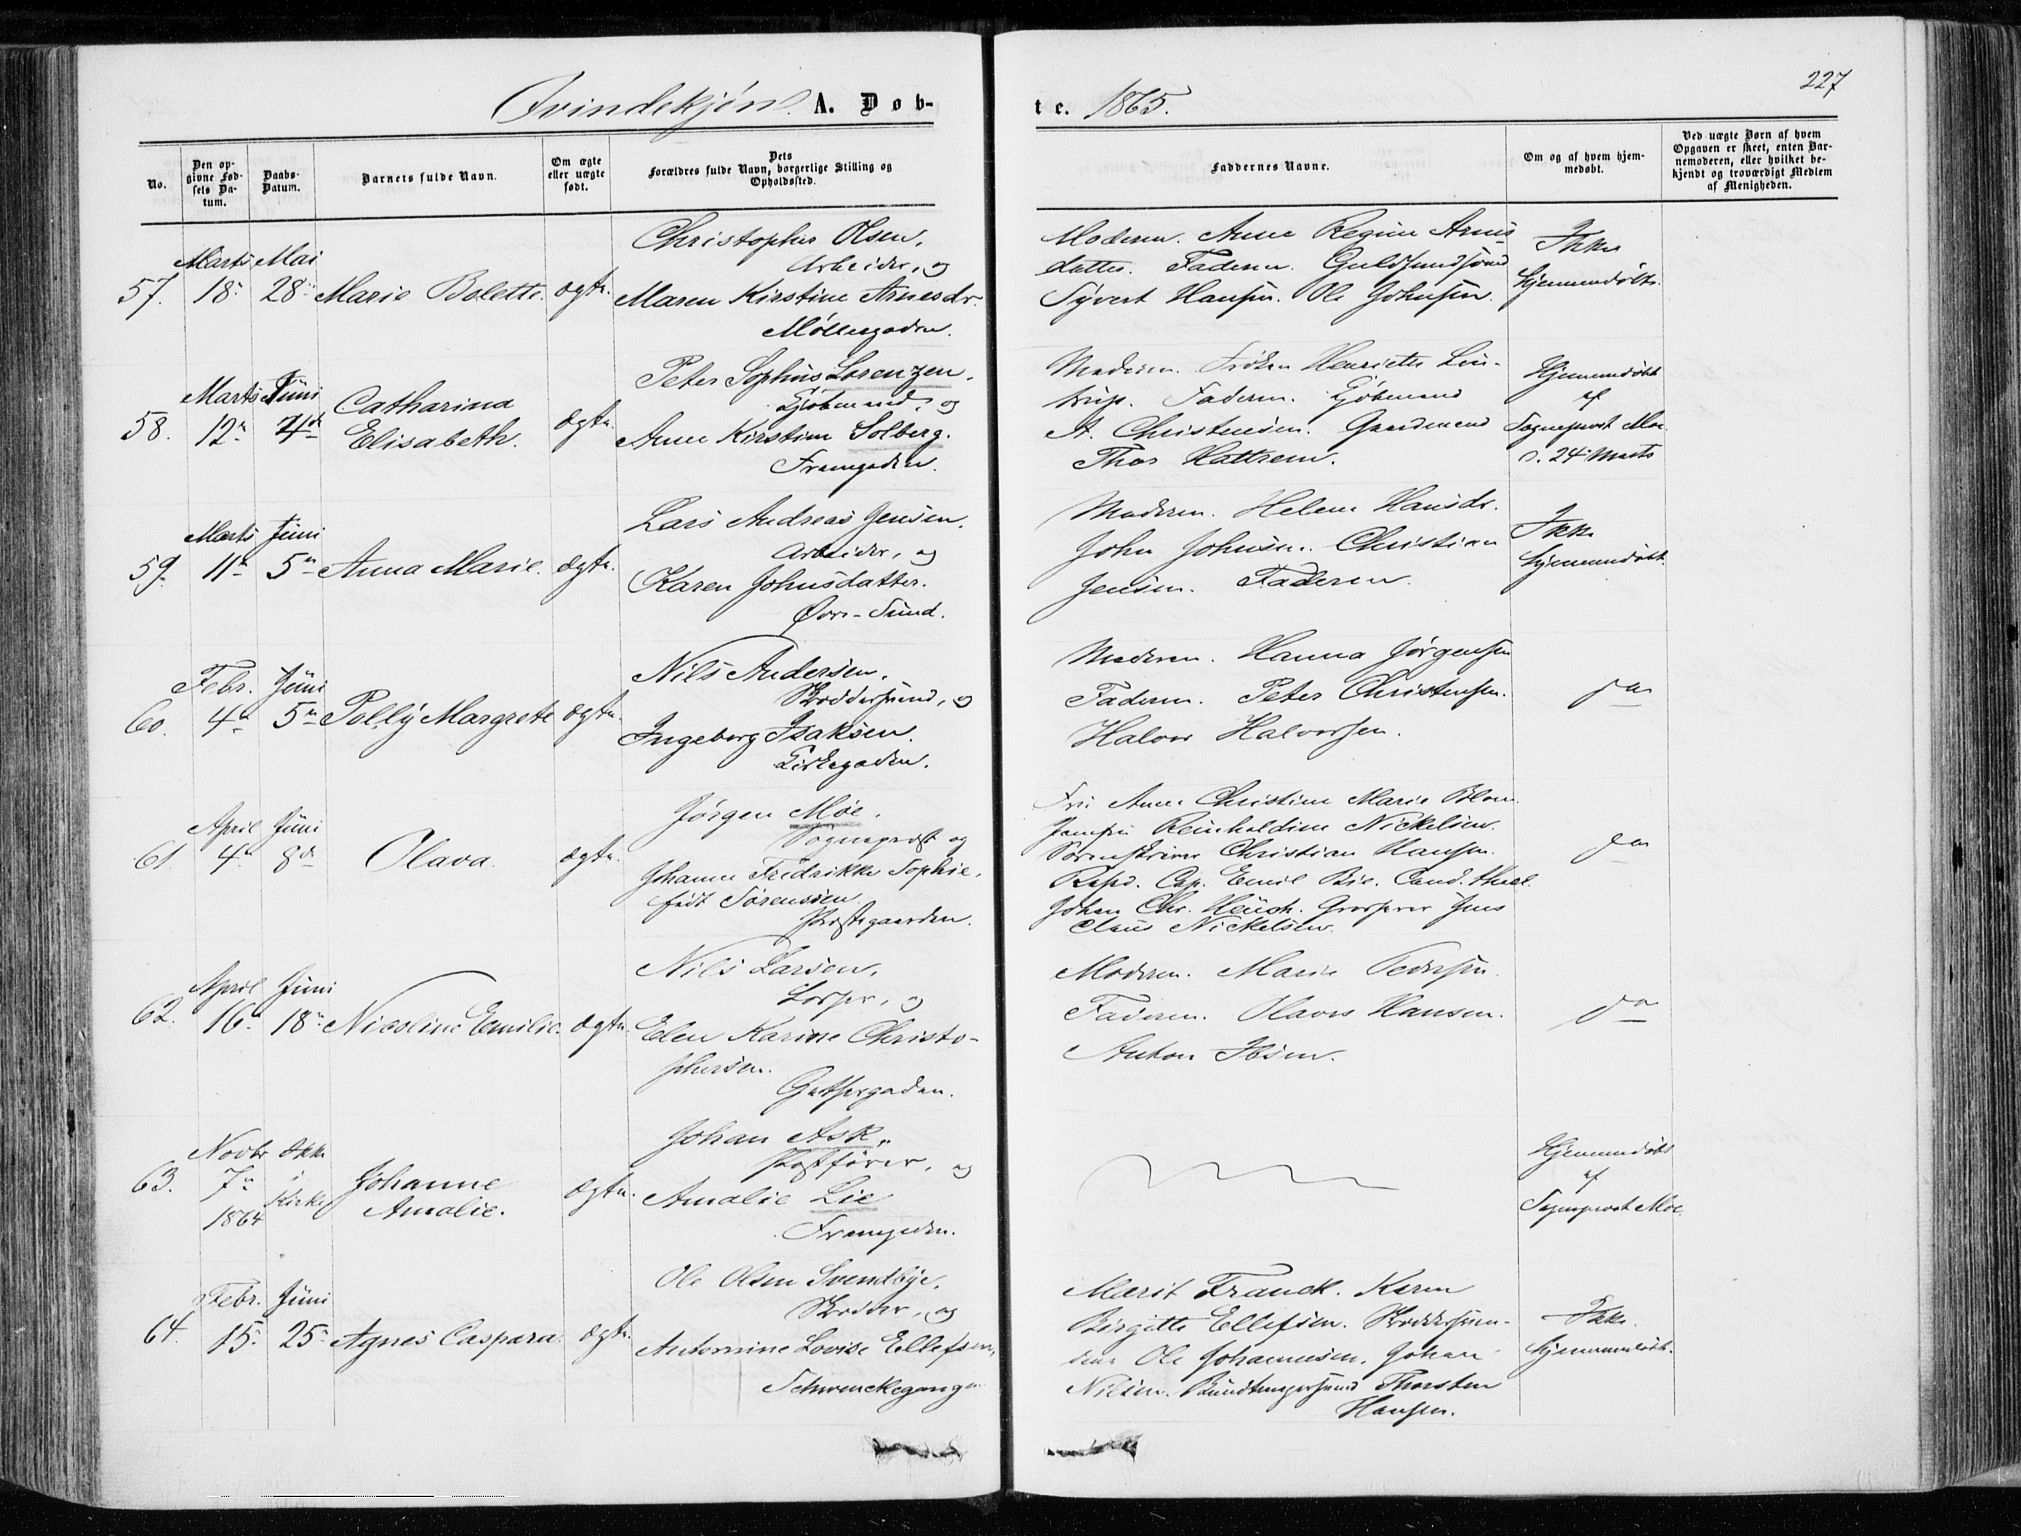 227
Qvindekjøn. A. Døb-
te. 1865.
No.
Den op-
givne Fød-
sels Da-
tum.
Daabs-
Datum.
Barnets fulde Navn.
Om ægte
eller uægte
født.
Dets
Forældres fulde Navn, borgerlige Stilling og
Opholdssted.
Faddernes Navne.
Om og af hvem hjem-
medøbt.
Ved uægte Børn af hvem
Opgaven er skeet, enten Bar-
nemoderen, eller hvilket be-
kjendt og troværdigt Medlem
af Menigheden.
57.
Marts
18
Mai
28
Marie Bolette.
ægte.
Christopher Olsen,
Arbeider, og
Maren Kirstine Arnesdr.
Møllergaden.
Moderen. Anne Regine Arnes
datter. Faderen.
Syvert Hansen. Ole Johnsen.
Ikke
Hjemmedøbt.
58.
Marts
12
Juni
4de
Catharina
Elisabeth.
ægte.
Peter Sophus Lorenzen.
Kjøbmand, og
Anne Kirstine Solberg.
Framgaden.
Moderen. Frøken Henriette Lin-
trup. Faderen. Kjøbmand
A. Christensen. Gaardmand
Thor Hattrem.
Hjemmedøbt
af
Sogneprest Moe
d. 24 Marts
59.
Marts
11
Juni
5
Anna Marie.
ægte.
Lars Andreas Jensen.
Arbeider, og
Karen Johnsdatter.
Øvre-Sund.
Moderen. Helene Hansdr.
John Johnsen. Christian
Jensen. Faderen.
Ikke
Hjemmedøbt.
60.
Febr.
4
Juni
5
Polly Margrete
ægte.
Nils Andersen.
Skræddersvend, og
Ingeborg Isaksen.
Kirkegaden.
Moderen. Hanna Jørgensen
Faderen. Peter Christensen.
Halvor Halvorsen.
do
61.
April
4
Juni
8de
Olava.
ægte.
Jørgen Moe.
Sogneprest og
Johanne Fredrikke Sophie,
født Sørensen.
Prestegaarden.
Fru Anne Christine Marie Blom.
Jomfru Reinholdine Nickelsen.
Sorenskriver Christian Hansen.
Cap. Emil Bie. Cand. theol.
Johan Chr. Heuch. Grosserer Jens
Claus Nickelsen.
do
62.
April
16
Juni
18
Nicoline Emilie.
ægte.
Nils Larsen,
Losser, og
Elen Karine Christo-
phersen.
Moderen. Marie Pedersen
Faderen. Olaves Hansen.
Anton Ibsen.
do
63.
Novbr
7
1864
Ikke
i
Kirke
Johanne
Amalie.
ægte.
Johan Ask.
Postfører, og
Amalie Lie
Framgaden.
Hjemmedøbt
af
Sogneprest Moe.
64.
Febr.
15
Juni
25
Agnes Caspara.
ægte.
Ole Olsen Svendbye,
Skrædder, og
Antonine Lovise Ellefsen,
Schwenckegangen
Marit Franck. Karen
Birgitte Ellefsen. Skræddersven-
dene Ole Johannesen, Johan
Nilsen. Bundtmagersvend Thorsten
Hansen.
Ikke
Hjemmedøbt.